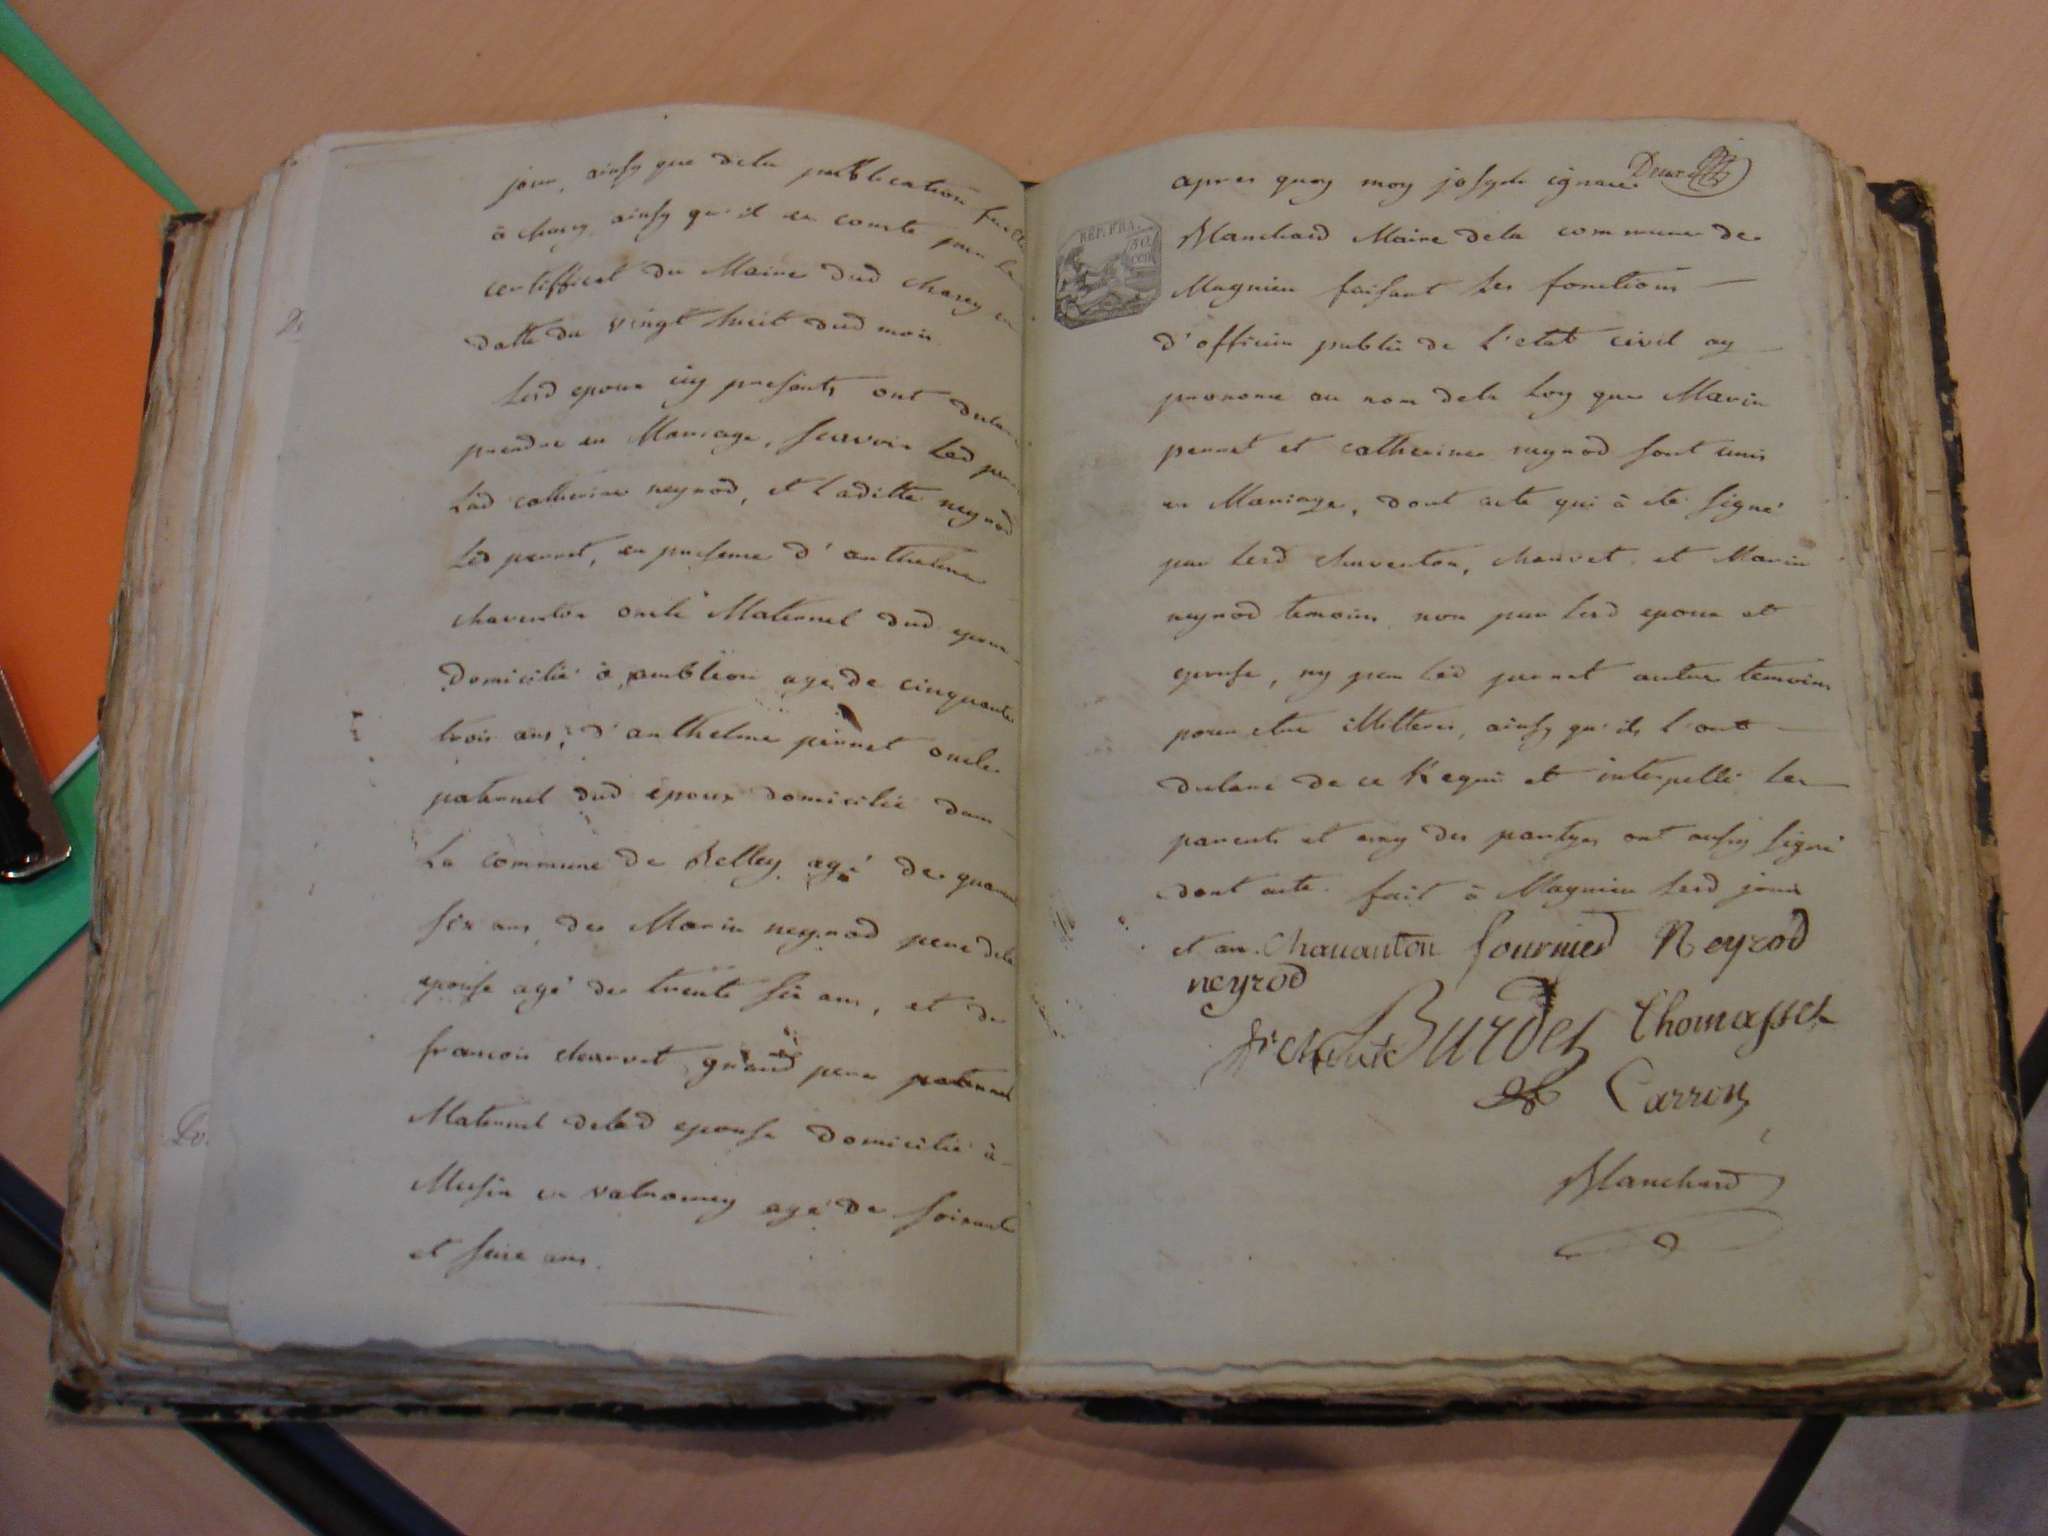 jour, ainsy que dela publication faitte
à charey ainsy qu'il en conste par le
certifficat du Maire dud charey en
datte du vingt huit dud mois
Lesd epoux icy presants ont declare
prendre en Mariage, scavoir Led pernet
Lad catherine neyrod, et Laditte neyrod
Led pernet, en presence d'anthelme
chaventon oncle Maternel dud epoux
Domicilié à ambleon agé de cinquante
trois ans, d'anthelme pernet oncle
paternel dud epoux domicilié dans
La commune de Belley agé de quarante
six ans, de Marin neyrod pere dela
epouse agé de trente six ans, et de
francois charvet grand pere paternel
Maternel delad epouse domicilié à
Musin en valromey agé de soixante
et seize ans.
Deux
apres quoy moy joseph ignace
REP. FRA.
50 CEN
Blanchard Maire dela commune de
Magnieu faisant les fonctions
d'officier public de L'etat civil ay
prononce au nom dela Loy que Marin
pernet et catherine neyrod sont unis
en Mariage, dont acte qui à eté signé
par Lesd chaventon, charvet et Marin
neyrod temoins non par Lesd epoux et
epouse, ny par Led pernet autre temoin
pour etre illitteres, ainsy qu'ils l'ont
declare de ce Requis et interpellé Les
parents et amy des partyes ont aussy signé
dont acte. fait à Magnieu Lesd jour
et an. Chauanton fournier Neyrod
neyrod
Burdet Thomasset
Carrin
Blanchard